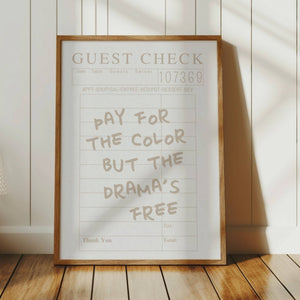 GUEST CHECK
Date Table Guests Server
107369
APPT-SOUP/SAL-ENTREE-VEG/POT-DESSERT-BEV
PAY FOR
THE COLOR
BUT THE
DRAMA'S
FREE
Tax
Thank You
Total